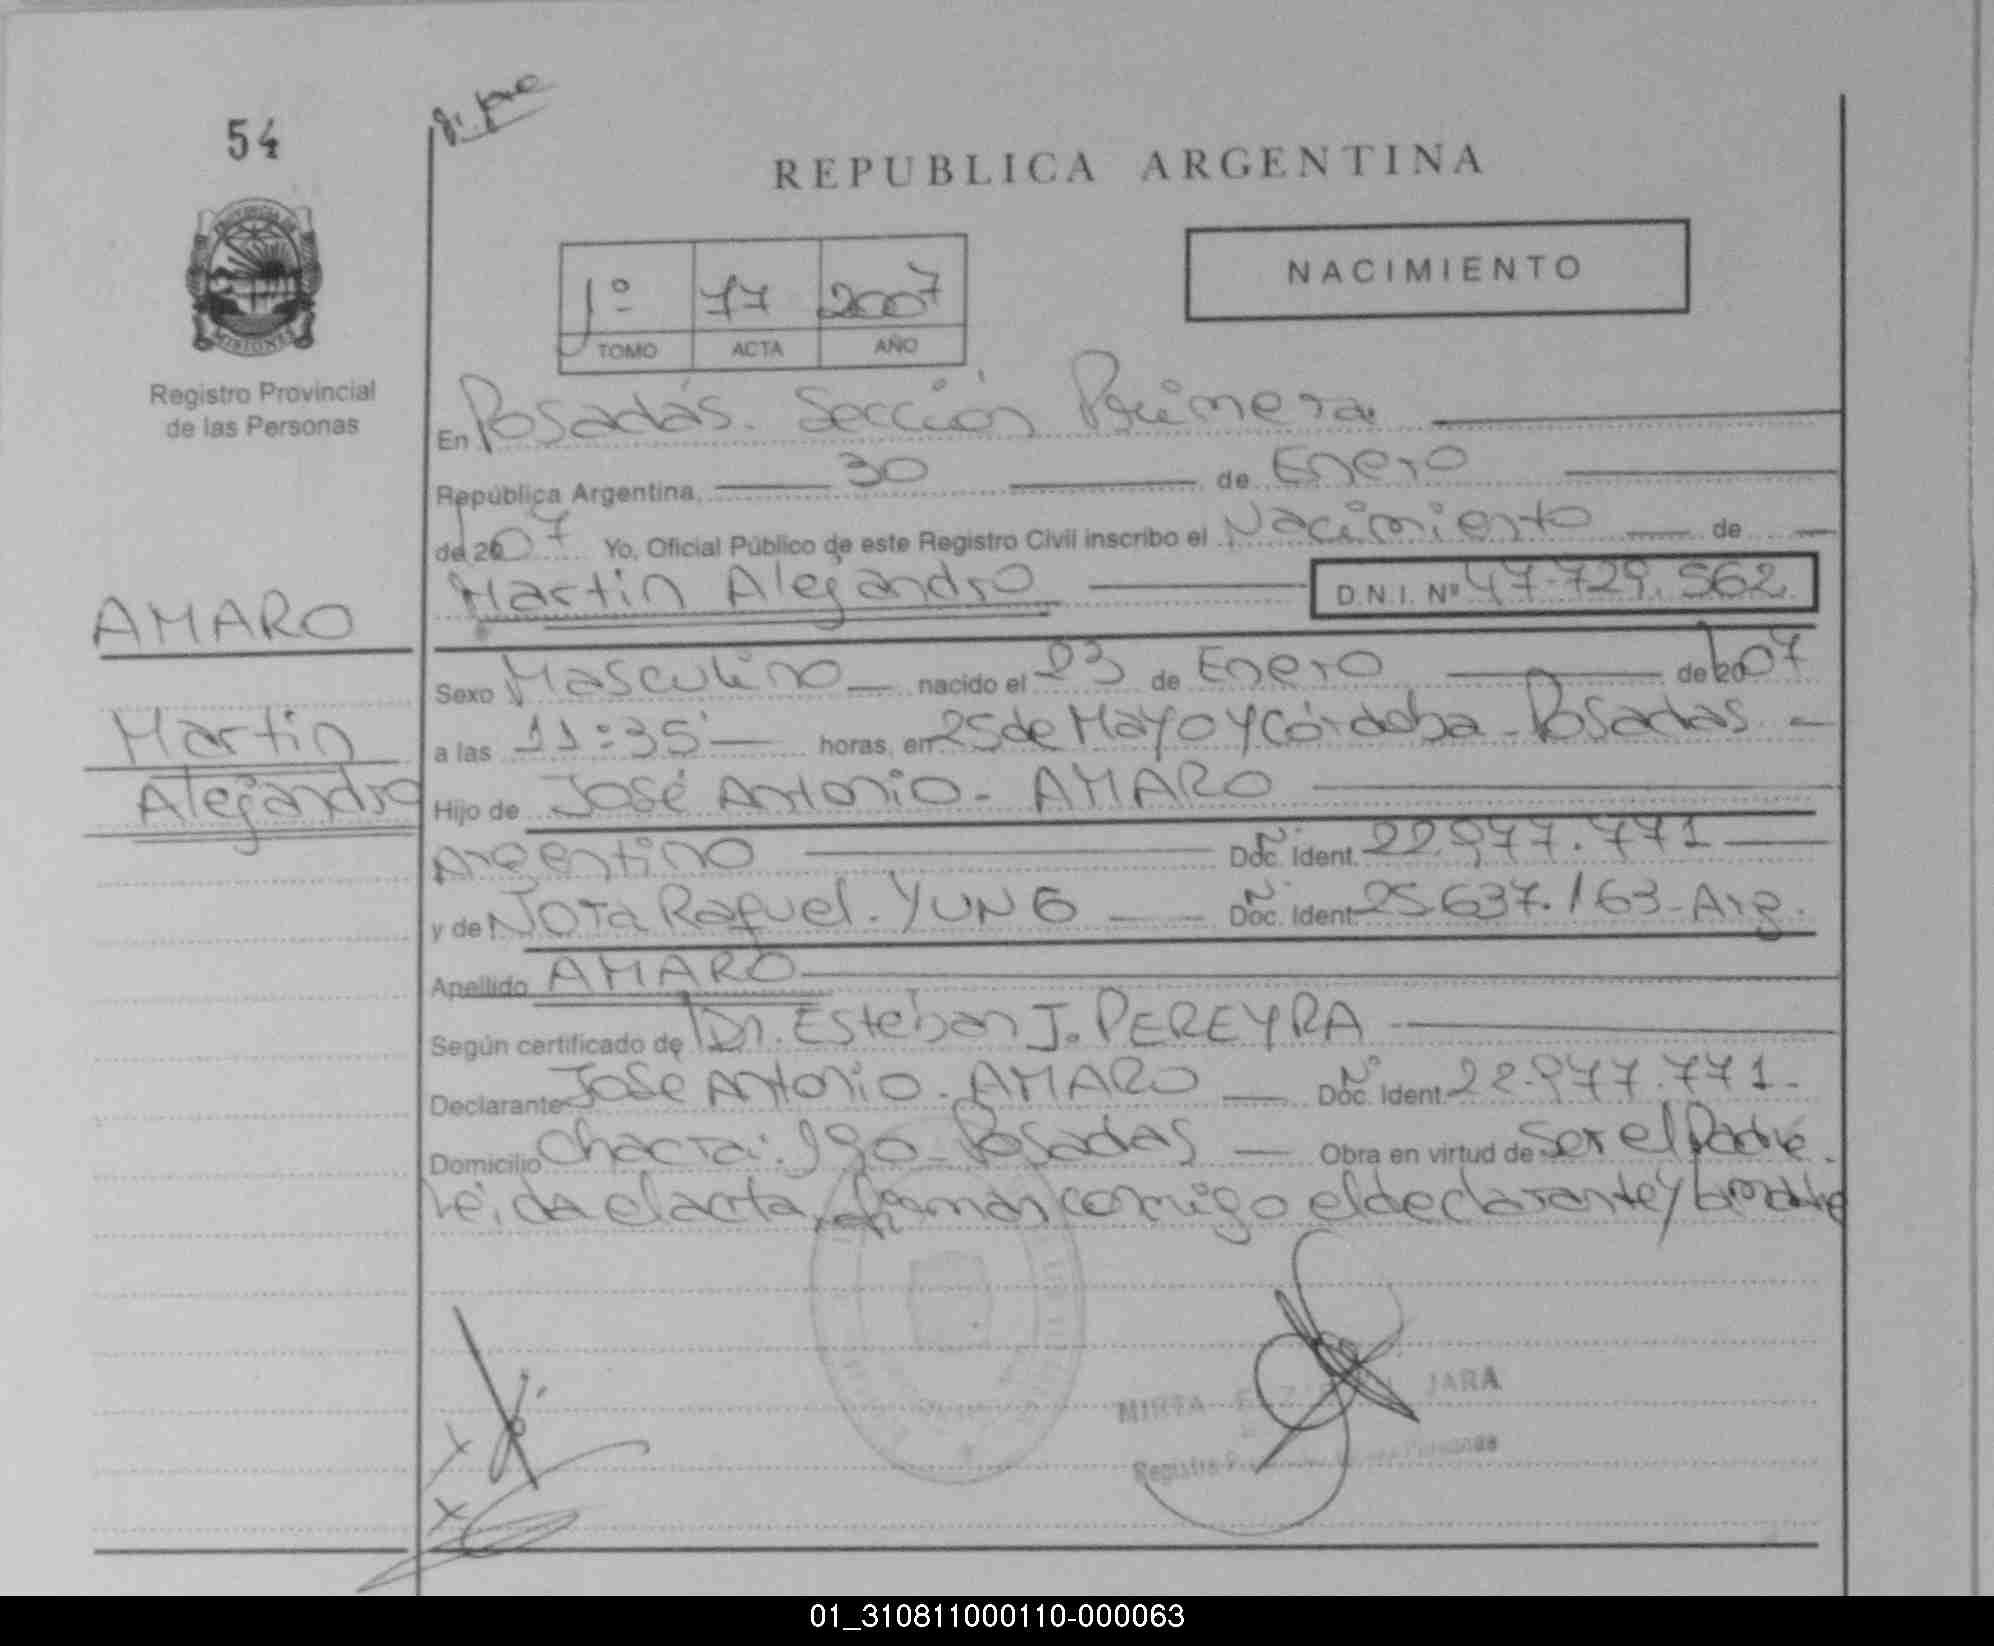 54
REPUBLICA ARGENTINA
NACIMIENTO
1º 77 2007
TOMO ACTA AÑO
PROVINCIA DE
MISIONES
Registro Provincial
de las Personas
En Posadas. Sección Primera
República Argentina, 30 de Enero
de 2007 Yo, Oficial Público de este Registro Civil inscribo el Nacimiento de
Martin Alejandro D.N.I. Nº 47.729.562
AMARO
Martin
Alejandro
Sexo Masculino nacido el 23 de Enero de 2007
a las 11:35 horas, en 25 de Mayo y Córdoba - Posadas
Hijo de José Antonio - AMARO
Argentino Nº Doc. Ident. 22.977.771
y de Raquel - YUNG Nº Doc. Ident. 25637.163 - Arg.
Apellido AMARO
Según certificado de Dr. Esteban J. PEREYRA
Declarante José Antonio - AMARO Nº Doc. Ident. 22.977.771 -
Domicilio Chacra: 190 - Posadas Obra en virtud de Ser el Padre.
Leída el acta, firman conmigo el declarante y la madre
MIRTA JARA
Registro Personas
01_310811000110-000063